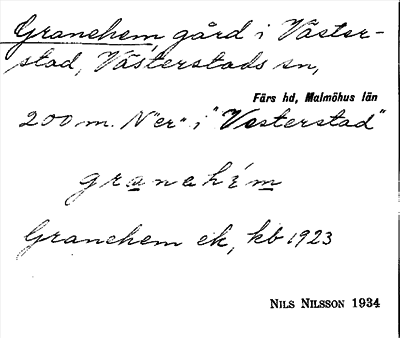 Granehem, gård i Väster-
stad, Västerstads sn,
Färs hd, Malmöhus län
200 m. N "er" i "Vesterstad"
granehém
Granehem ek, kb 1923
NILS NILSSON 1934